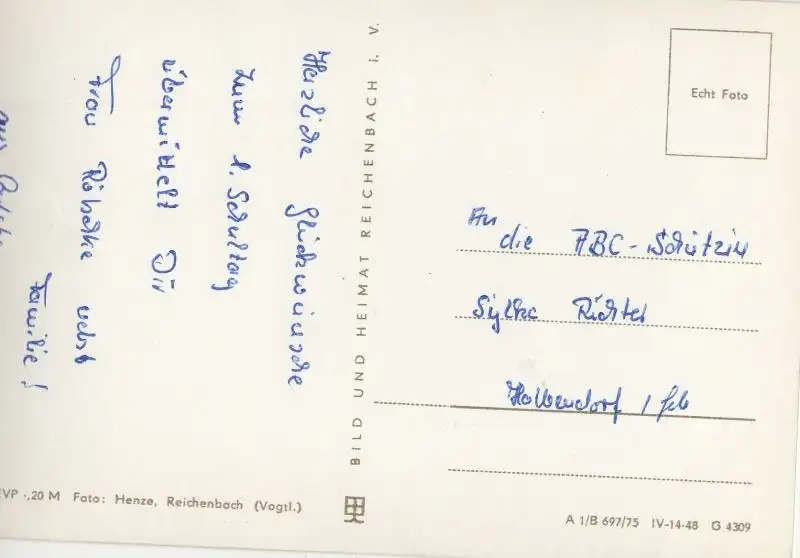 Herzliche Glückwünsche
zum 1. Schultag
übermittelt Dir
Frau Röhrke nebst
Familie!
aus
BILD UND HEIMAT REICHENBACH I. V.
Echt Foto
An
die ABC-Schützin
Sylke Richter
Halbendorf / Geb
EVP -,20 M Foto: Henze, Reichenbach (Vogtl.)
A 1/B 697/75 IV-14-48 G 4309